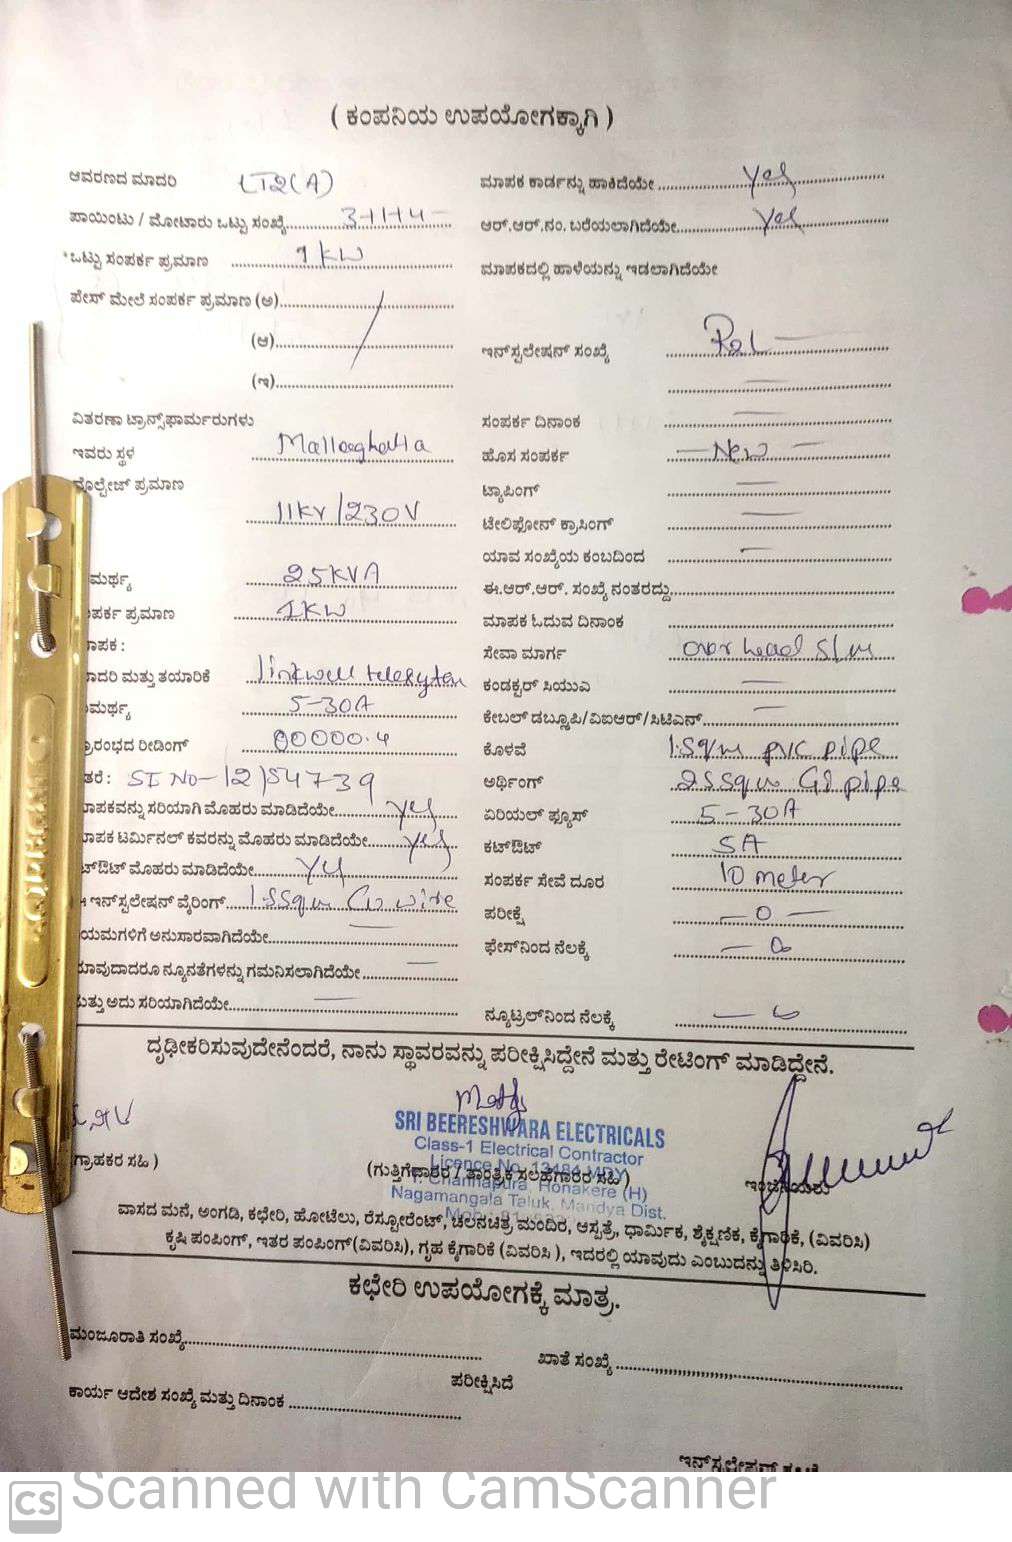 ( ಕಂಪನಿಯ ಉಪಯೋಗಕ್ಕಾಗಿ )
ಆವರಣದ ಮಾದರಿ LT2(A)
ಪಾಯಿಂಟು / ಮೋಟಾರು ಒಟ್ಟು ಸಂಖ್ಯೆ
*ಒಟ್ಟು ಸಂಪರ್ಕ ಪ್ರಮಾಣ 1 KW
ಪೇಸ್ ಮೇಲೆ ಸಂಪರ್ಕ ಪ್ರಮಾಣ (ಅ)
(ಆ)
(ಇ)
ವಿತರಣಾ ಟ್ರಾನ್ಸ್‌ಫಾರ್ಮರುಗಳು
ಇವರು ಸ್ಥಳ
ವೊಲ್ಟೇಜ್ ಪ್ರಮಾಣ
11KV/230V
ಮರ್ಥ್ಯ 25KVA
ಪರ್ಕ ಪ್ರಮಾಣ 1KW
ಾಪಕ :
ಾದರಿ ಮತ್ತು ತಯಾರಿಕೆ linkwell
ಮರ್ಥ್ಯ 5-30A
ಪ್ರಾರಂಭದ ರೀಡಿಂಗ್ 00000.4
ತರೆ : Sl No-12154739
ಮಾಪಕವನ್ನು ಸರಿಯಾಗಿ ಮೊಹರು ಮಾಡಿದೆಯೇ yes
ಮಾಪಕ ಟರ್ಮಿನಲ್ ಕವರನ್ನು ಮೊಹರು ಮಾಡಿದೆಯೇ yes
ಟ್‌ಔಟ್ ಮೊಹರು ಮಾಡಿದೆಯೇ yes
ಈ ಇನ್‌ಸ್ಟಲೇಷನ್ ವೈರಿಂಗ್ 1.5Sqm Cu wire
ಯಮಗಳಿಗೆ ಅನುಸಾರವಾಗಿದೆಯೇ
ಯಾವುದಾದರೂ ನ್ಯೂನತೆಗಳನ್ನು ಗಮನಿಸಲಾಗಿದೆಯೇ
ಮತ್ತು ಅದು ಸರಿಯಾಗಿದೆಯೇ
ಮಾಪಕ ಕಾರ್ಡನ್ನು ಹಾಕಿದೆಯೇ yes
ಆರ್.ಆರ್.ನಂ. ಬರೆಯಲಾಗಿದೆಯೇ yes
ಮಾಪಕದಲ್ಲಿ ಹಾಳೆಯನ್ನು ಇಡಲಾಗಿದೆಯೇ
ಇನ್‌ಸ್ಟಲೇಷನ್ ಸಂಖ್ಯೆ
ಸಂಪರ್ಕ ದಿನಾಂಕ
ಹೊಸ ಸಂಪರ್ಕ New
ಟ್ಯಾಪಿಂಗ್
ಟೇಲಿಫೋನ್ ಕ್ರಾಸಿಂಗ್
ಯಾವ ಸಂಖ್ಯೆಯ ಕಂಬದಿಂದ
ಈ.ಆರ್.ಆರ್. ಸಂಖ್ಯೆ ನಂತರದ್ದು
ಮಾಪಕ ಓದುವ ದಿನಾಂಕ
ಸೇವಾ ಮಾರ್ಗ over head
ಕಂಡಕ್ಟರ್ ಸಿಯುವಿ
ಕೇಬಲ್ ಡಬ್ಲೂಪಿ/ವಿಐಆರ್/ಸಿಟಿಎನ್
ಕೊಳವೆ 1.5qm PVC pipe
ಅರ್ಥಿಂಗ್ 2.5Sqm GI pipe
ಏರಿಯಲ್ ಫ್ಯೂಸ್ 5-30A
ಕಟ್‌ಔಟ್ 5A
ಸಂಪರ್ಕ ಸೇವೆ ದೂರ 10 meter
ಪರೀಕ್ಷೆ - 0 -
ಫೇಸ್‌ನಿಂದ ನೆಲಕ್ಕೆ - 0
ನ್ಯೂಟ್ರಲ್‌ನಿಂದ ನೆಲಕ್ಕೆ
ದೃಢೀಕರಿಸುವುದೇನೆಂದರೆ, ನಾನು ಸ್ಥಾವರವನ್ನು ಪರೀಕ್ಷಿಸಿದ್ದೇನೆ ಮತ್ತು ರೇಟಿಂಗ್ ಮಾಡಿದ್ದೇನೆ.
SRI BEERESHWARA ELECTRICALS
Class-1 Electrical Contractor
Licence No. 13484 MDY
Channapura, Honakere (H)
Nagamangala Taluk, Mandya Dist.
ಗ್ರಾಹಕರ ಸಹಿ )
(ಗುತ್ತಿಗೆದಾರರ / ತಾಂತ್ರಿಕ ಸಲಹೆಗಾರರ ಸಹಿ )
ವಾಸದ ಮನೆ, ಅಂಗಡಿ, ಕಛೇರಿ, ಹೋಟೆಲು, ರೆಸ್ಟೋರೆಂಟ್, ಚಲನಚಿತ್ರ ಮಂದಿರ, ಆಸ್ಪತ್ರೆ, ಧಾರ್ಮಿಕ, ಶೈಕ್ಷಣಿಕ, ಕೈಗಾರಿಕೆ, (ವಿವರಿಸಿ)
ಕೃಷಿ ಪಂಪಿಂಗ್, ಇತರ ಪಂಪಿಂಗ್ (ವಿವರಿಸಿ), ಗೃಹ ಕೈಗಾರಿಕೆ (ವಿವರಿಸಿ ), ಇದರಲ್ಲಿ ಯಾವುದು ಎಂಬುದನ್ನು ತಿಳಿಸಿರಿ.
ಕಛೇರಿ ಉಪಯೋಗಕ್ಕೆ ಮಾತ್ರ.
ಮಂಜೂರಾತಿ ಸಂಖ್ಯೆ
ಖಾತೆ ಸಂಖ್ಯೆ
ಪರೀಕ್ಷಿಸಿದೆ
ಕಾರ್ಯ ಆದೇಶ ಸಂಖ್ಯೆ ಮತ್ತು ದಿನಾಂಕ
CS Scanned with CamScanner